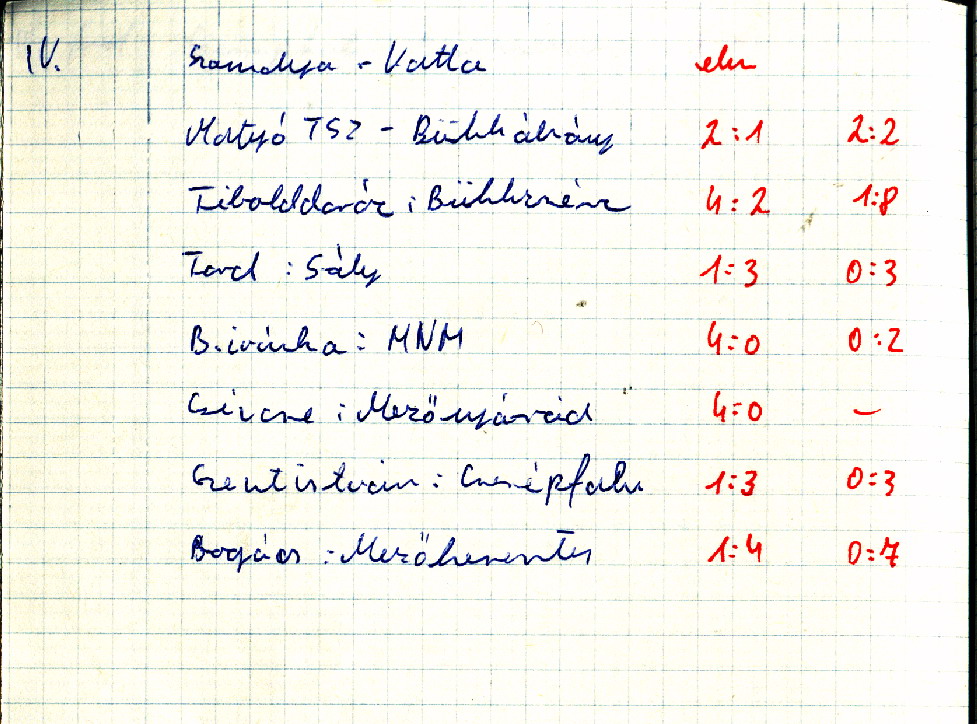 IV. Szomolya - Vatta elm
Matyó TSZ - Bükkábrány 2:1 2:2
Tibolddaróc : Bükkzsérc 4:2 1:8
Tard : Sály 1:3 0:3
B.ivánka : MNM 4:0 0:2
: Mezőnyárád 4:0 –
Szentistván : Cserépfalu 1:3 0:3
Bogács : Mezőkeresztes 1:4 0:7